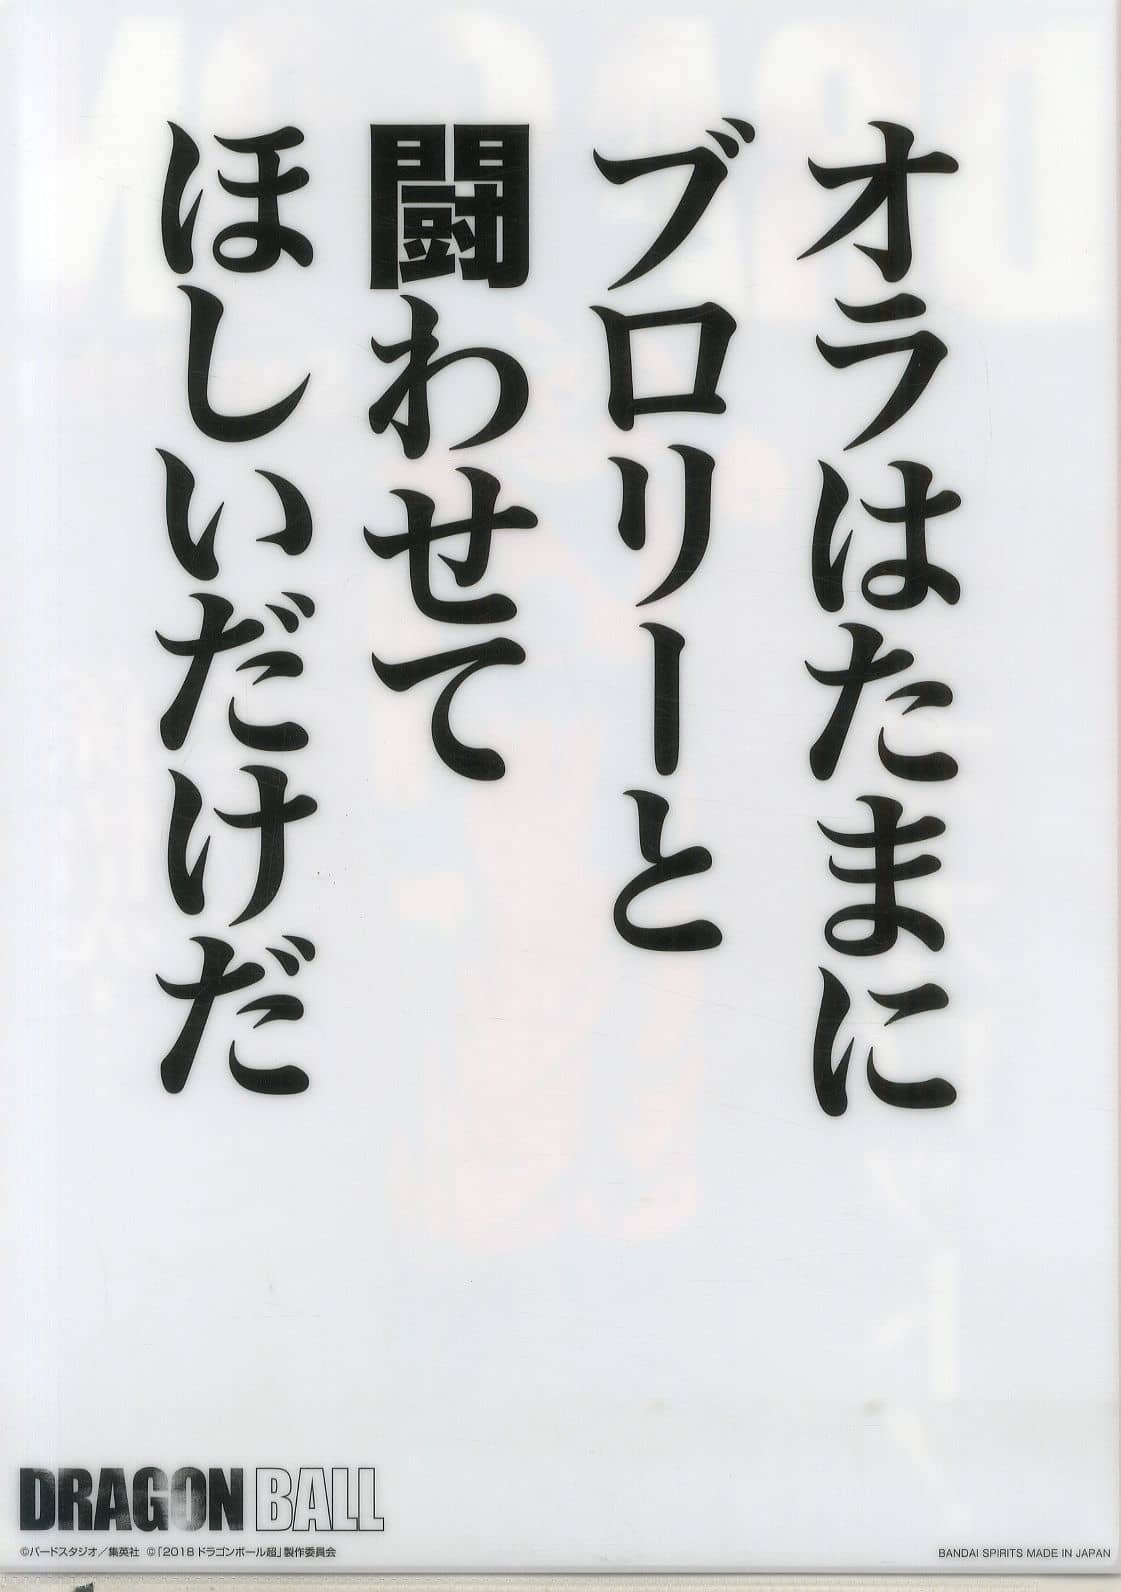 オラはたまに
ブロリーと
闘わせて
ほしいだけだ
DRAGON BALL
©バードスタジオ／集英社 ©「2018 ドラゴンボール超」製作委員会
BANDAI SPIRITS MADE IN JAPAN